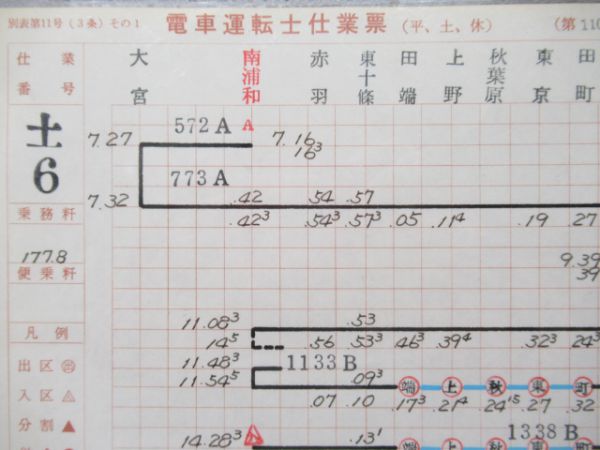 別表第11号(3条)その1 電車運転士仕業票 (平、土、休) (第110
仕業番号 大宮 南浦和 赤羽 東十條 田端 上野 秋葉原 東京 田町
土6
572A A
7.27 7.16 16³
773A
7.32 .42 .54 .57
.42³ .54³ .57³ .05 .11⁴ .19 .27
乗務粁
177.8
9.39
39
便乗粁
11.08³ .53
14⁵ .56 .53³ 46³ .39⁴ .32³ 24³
凡例
11.48³ 1133B
出区
11.54⁵ .09³ 端 上 秋 東 町
入区
.07 .10 .17³ .21⁴ 24¹⁵ .27 .32
分割▲
14.28³ .13¹ 1338B
端 上 秋 東 町